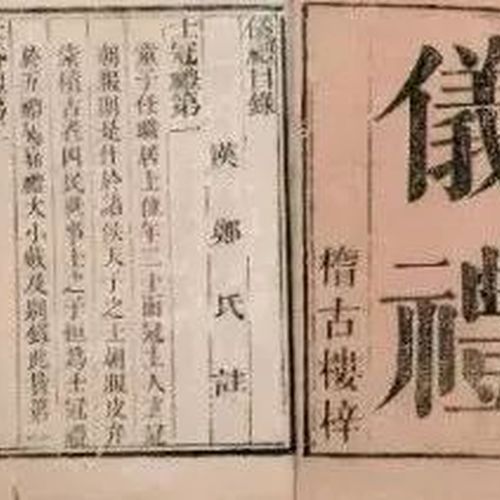 儀禮
稽古樓梓
儀禮目錄
漢鄭氏註
士冠禮第一
童子任職居士位年二十而冠主人玄冠
朝服則是仕於諸侯天子之士朝服皮弁
素積古者四民世事士之子恒為士冠禮
於五禮屬嘉禮大小戴及別錄此皆第一